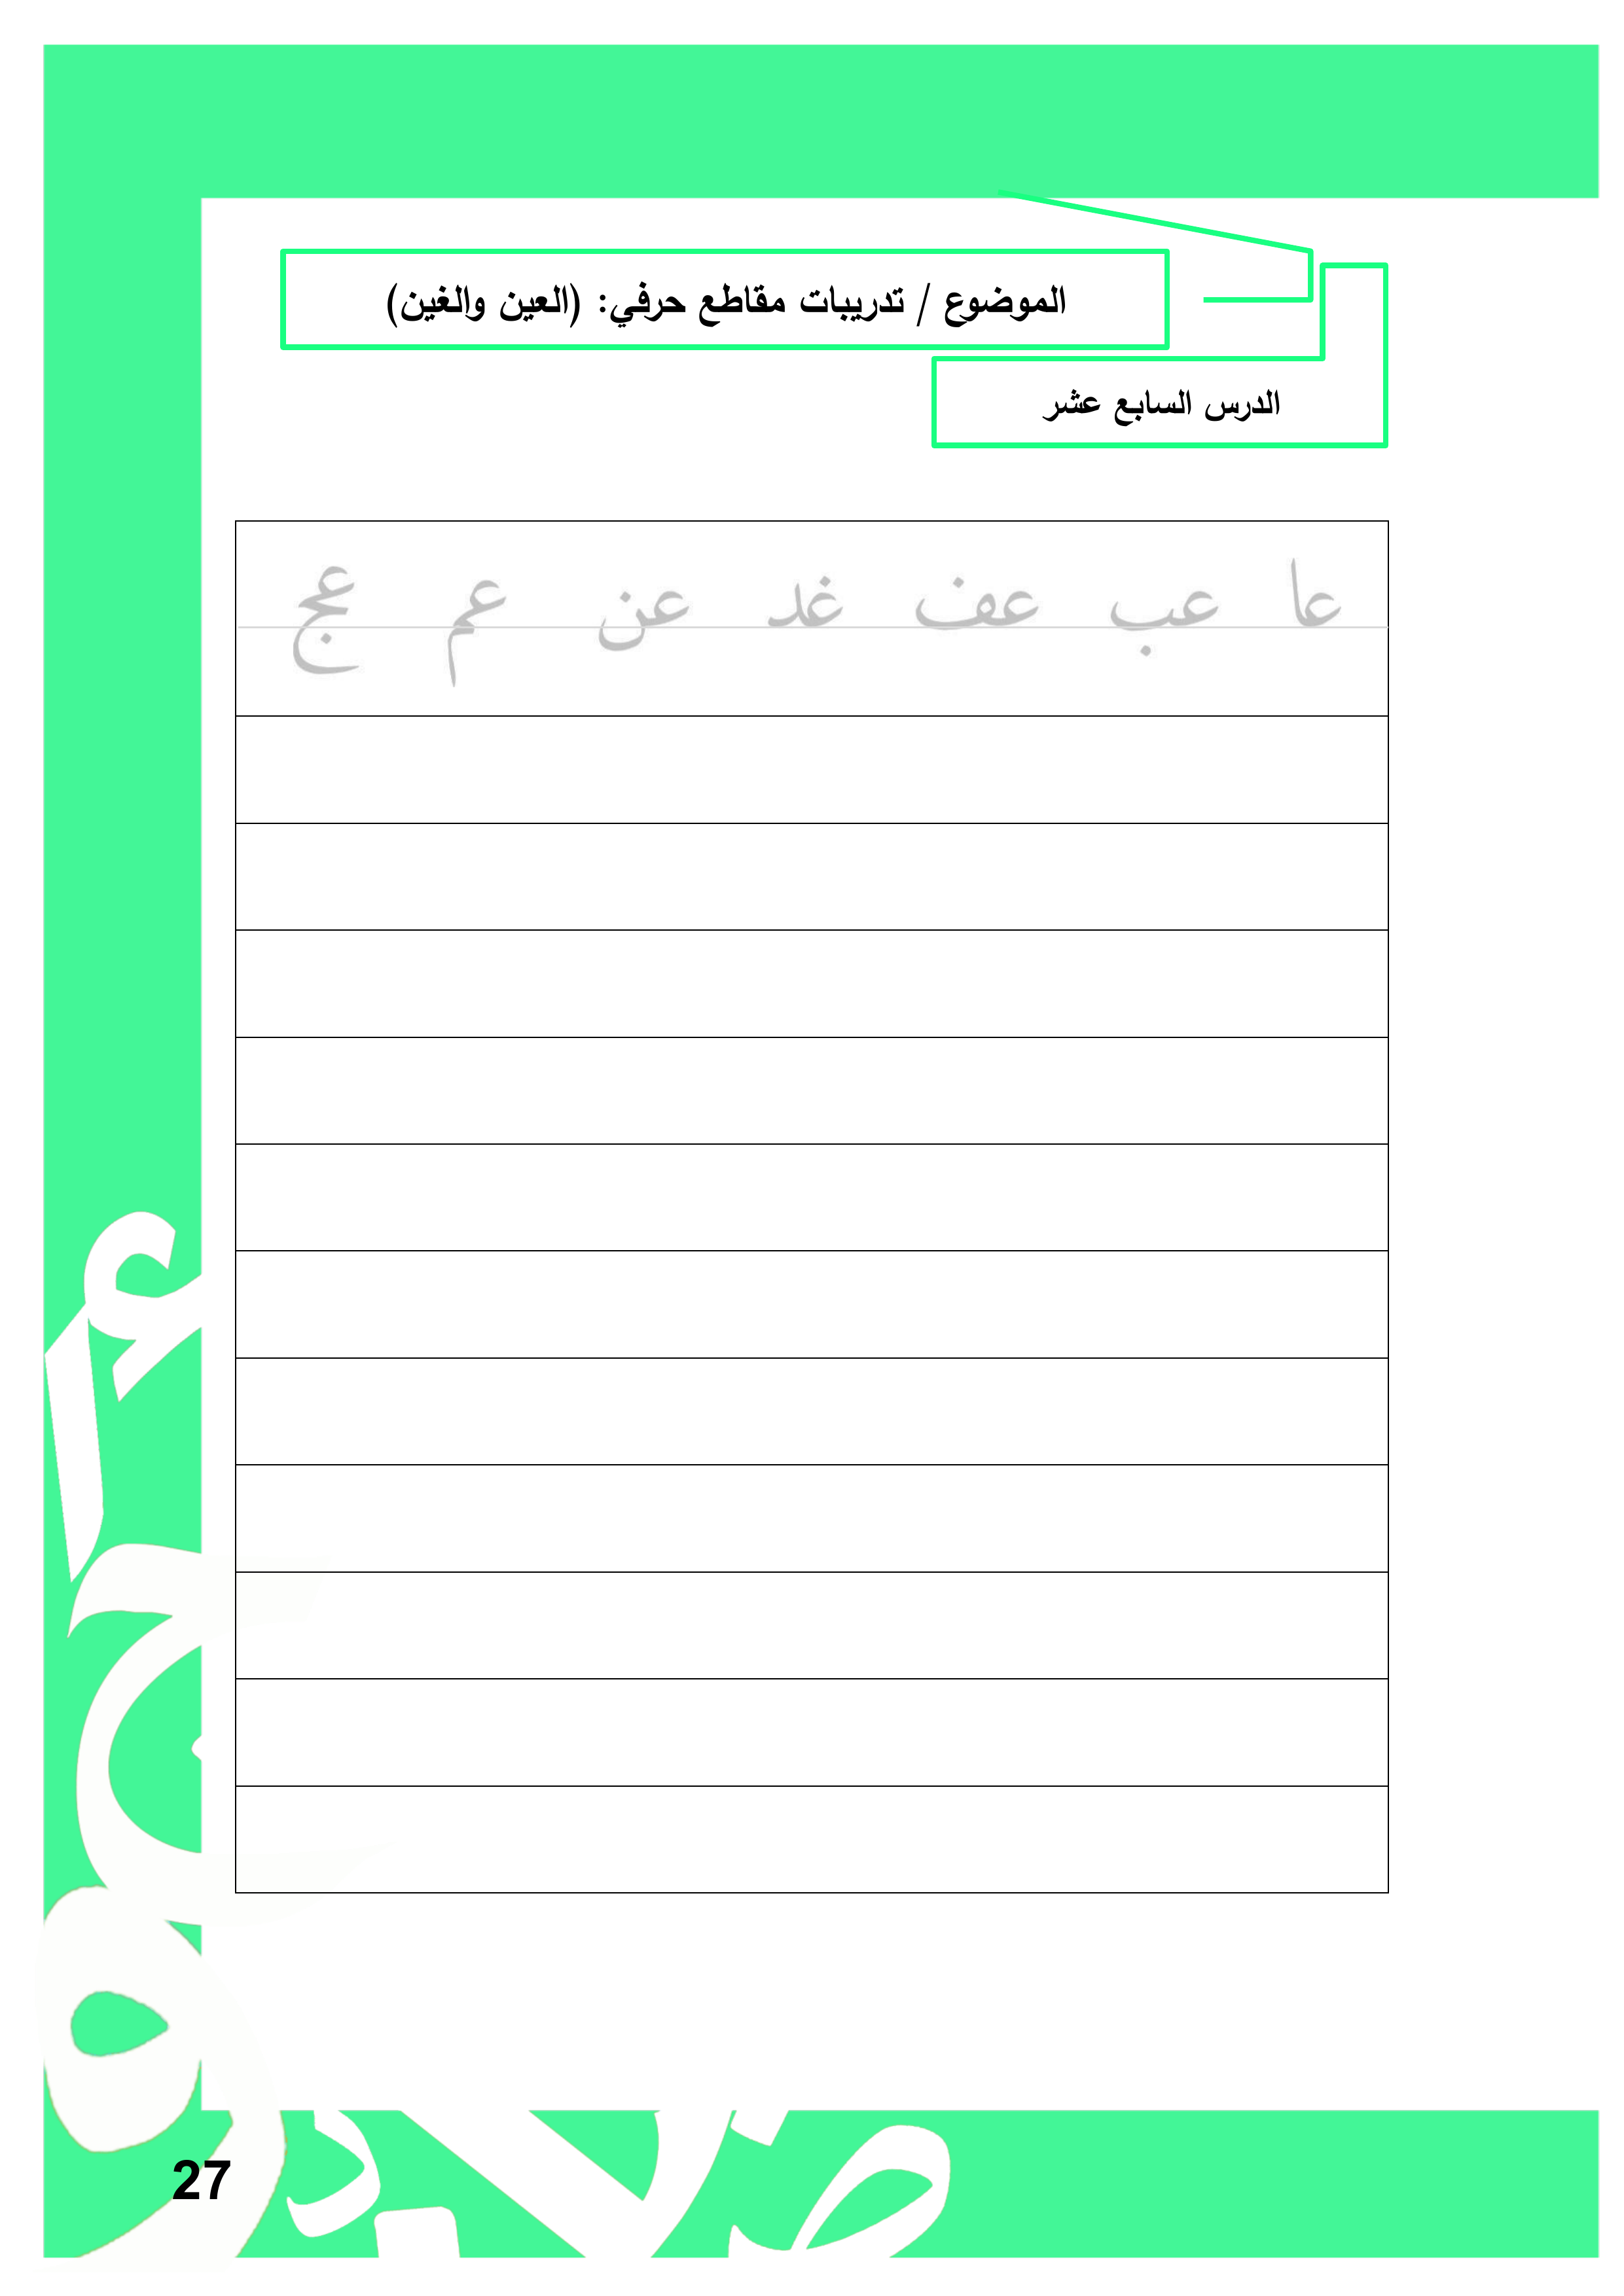 الموضوع / تدريبات مقاطع حرفي: (العين والغين)
الدرس السابع عشر
عا عب عف غد عن عم عج
27